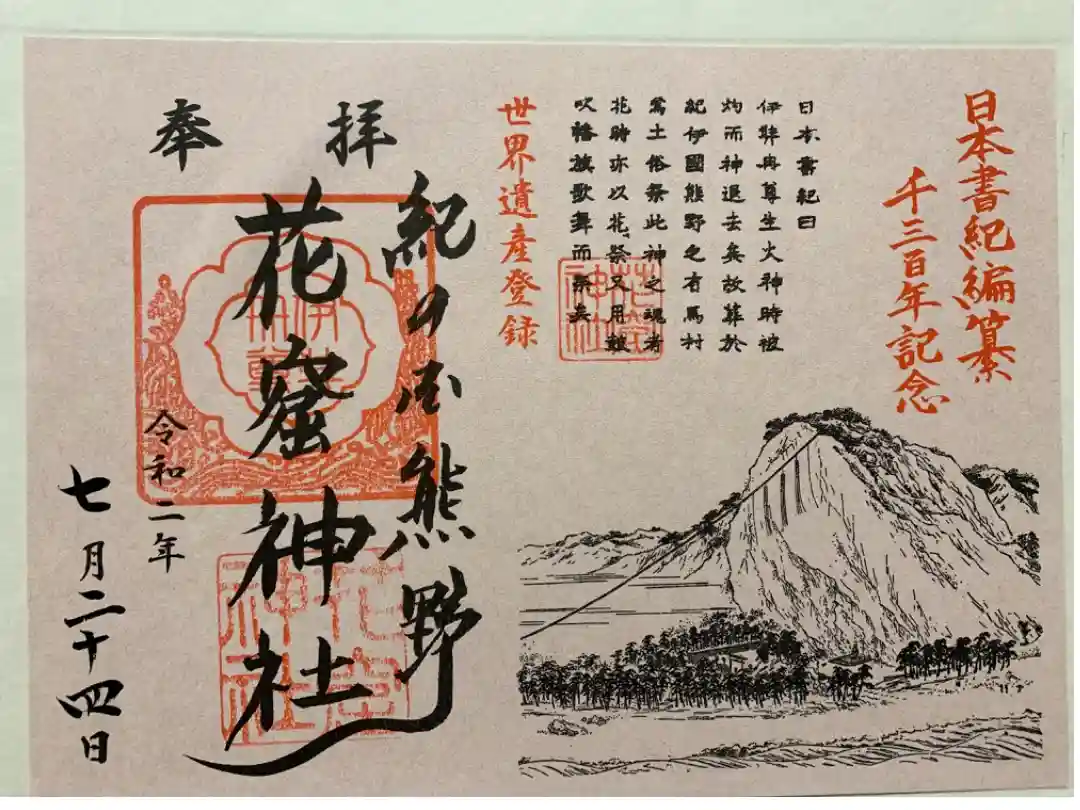 日本書紀編纂
千三百年記念
日本書紀曰
伊弉冉尊生火神時被
灼而神退去矣故葬於
紀伊國熊野之有馬村
焉土俗祭此神之魂者
花時亦以花祭又用鼓
吹幡旗歌舞而祭矣
花窟
神社
世界遺産登録
奉拝
紀の国熊野
花窟神社
花窟
神社
令和二年
七月二十四日